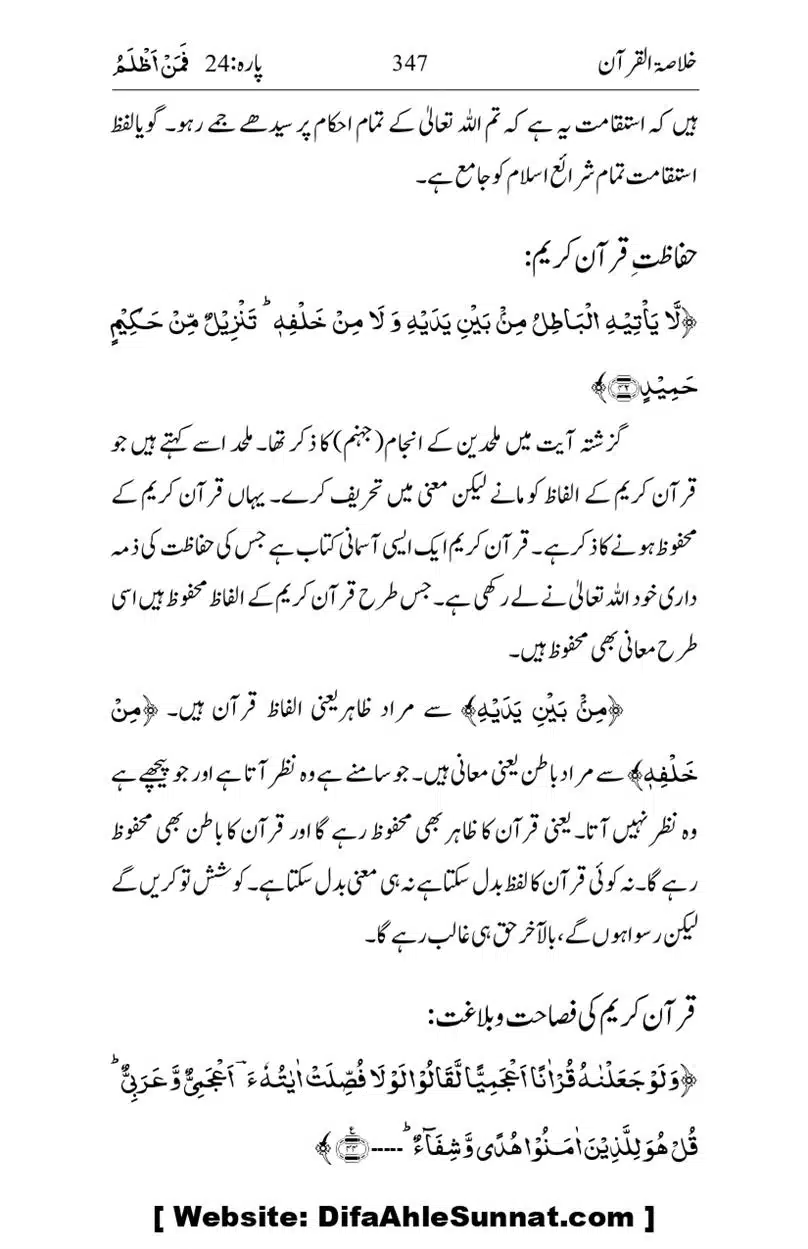 خلاصۃ القرآن 347 پارہ:24 فَمَنْ اَظْلَمُ
ہیں کہ استقامت یہ ہے کہ تم اللہ تعالیٰ کے تمام احکام پر سیدھے جمے رہو۔ گویا لفظ
استقامت تمام شرائع اسلام کو جامع ہے۔
حفاظتِ قرآن کریم:
﴿لَّا یَاْتِیْہِ الْبَاطِلُ مِنْۢ بَیْنِ یَدَیْہِ وَ لَا مِنْ خَلْفِہٖ ؕ تَنْزِیْلٌ مِّنْ حَکِیْمٍ
حَمِیْدٍ ﴿۴۲﴾﴾
گزشتہ آیت میں ملحدین کے انجام (جہنم) کا ذکر تھا۔ ملحد اسے کہتے ہیں جو
قرآن کریم کے الفاظ کو مانے لیکن معنی میں تحریف کرے۔ یہاں قرآن کریم کے
محفوظ ہونے کا ذکر ہے۔ قرآن کریم ایک ایسی آسمانی کتاب ہے جس کی حفاظت کی ذمہ
داری خود اللہ تعالیٰ نے لے رکھی ہے۔ جس طرح قرآن کریم کے الفاظ محفوظ ہیں اسی
طرح معانی بھی محفوظ ہیں۔
﴿مِنْۢ بَیْنِ یَدَیْہِ﴾ سے مراد ظاہر یعنی الفاظ قرآن ہیں۔ ﴿مِنْ
خَلْفِہٖ﴾ سے مراد باطن یعنی معانی ہیں۔ جو سامنے ہے وہ نظر آتا ہے اور جو پیچھے ہے
وہ نظر نہیں آتا۔ یعنی قرآن کا ظاہر بھی محفوظ رہے گا اور قرآن کا باطن بھی محفوظ
رہے گا۔ نہ کوئی قرآن کا لفظ بدل سکتا ہے نہ ہی معنی بدل سکتا ہے۔ کوشش تو کریں گے
لیکن رسوا ہوں گے، بالآخر حق ہی غالب رہے گا۔
قرآن کریم کی فصاحت و بلاغت:
﴿وَ لَوْ جَعَلْنٰہُ قُرْاٰنًا اَعْجَمِیًّا لَّقَالُوْا لَوْ لَا فُصِّلَتْ اٰیٰتُہٗ ءَؔاَعْجَمِیٌّ وَّ عَرَبِیٌّ ؕ
قُلْ ہُوَ لِلَّذِیْنَ اٰمَنُوْا ہُدًی وَّ شِفَآءٌ ؕ ----- ﴿۴۴﴾﴾
[ Website: DifaAhleSunnat.com ]